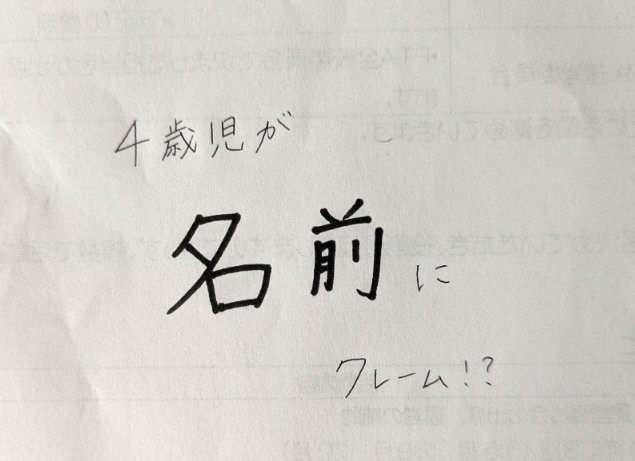 4歳児が
名前に
クレーム!?